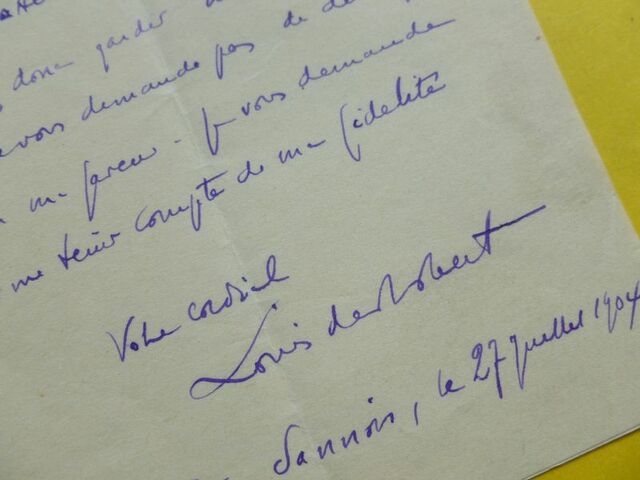 donc garder
vous demande pas de
ma faveur - Je vous demande
me tenir compte de ma fidélité
Votre cordial
Louis de Robert
Sannois, le 27 juillet 1904